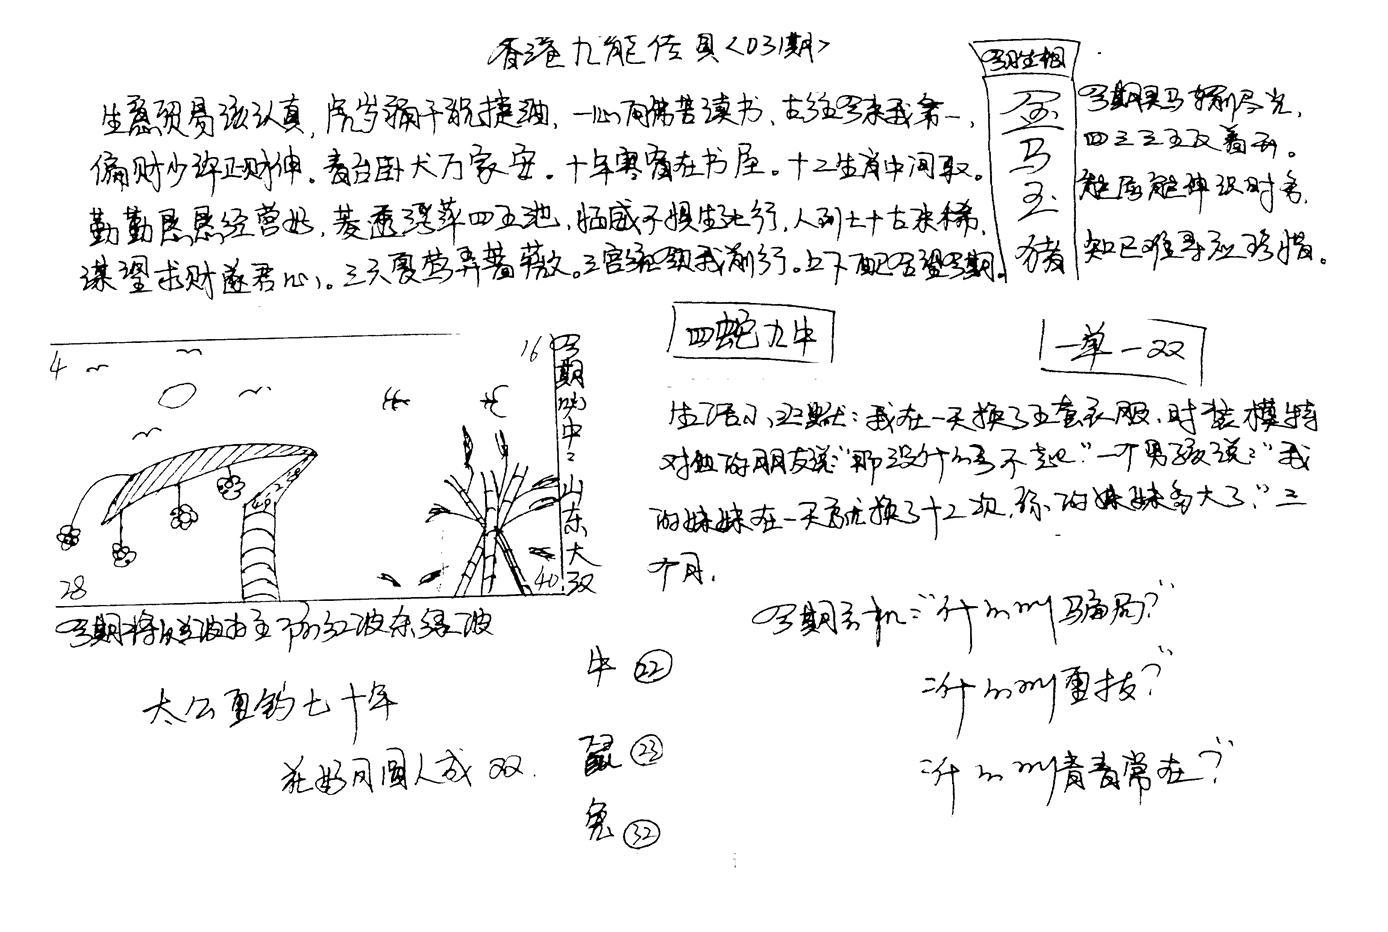 香港九龍传真<031期>
今期生相
金马玉猪
生意贸易该认真，虎岁拜干祝捷油，一心向佛苦读书，古往今来我第一，
偏财少许正财伸。看台卧犬万家安。十年寒窗在书屋。十二生肖中间取。
勤勤恳恳经营好，菱透浮萍四五池，临威不惧生死行，人到七十古来稀，
谋望求财遂君心。三六夏莺弄蔷薇。三宫我前行。上下配合望今期。
今期马好尽光，
四三三五反看利。
时多，
知己难寻应珍惜。
四蛇九牛
一单一双
4
16
28
40
49 25
今期必中：山东大双
生活小幽默：我在一天换了五套衣服，时装模特
对她的朋友说"那没什么了不起"一个男孩说："我
的妹妹在一天就换了十二次，你的妹妹多大了？"三
个月，
今期将以绿波为主防红波杀绿波
太公垂钓七十年
花好月圆人成双．
牛 22
鼠 23
兔 32
今期玄机："什么叫骗局？"
"什么叫重拔？"
"什么叫青春常在？"